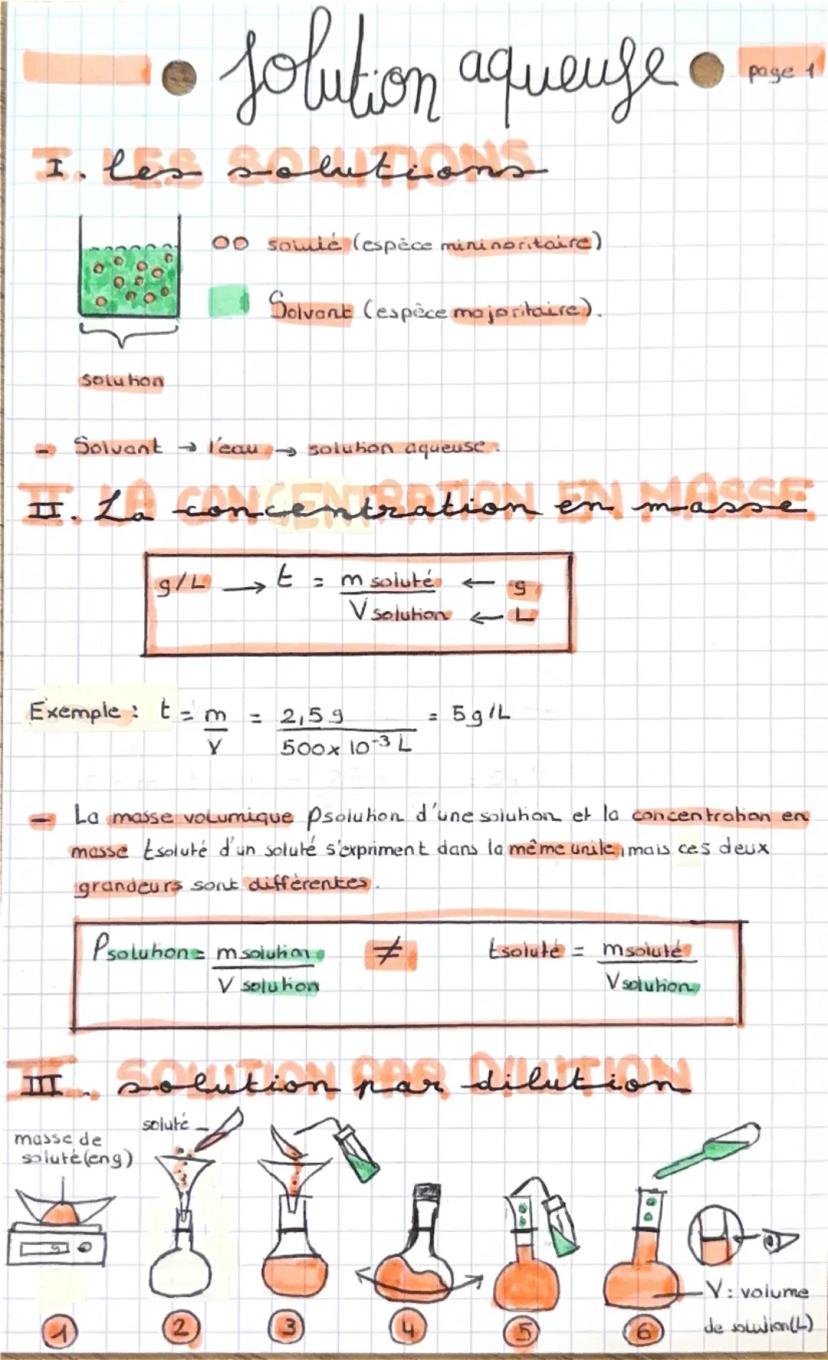 solution aqueuse
page 1
I. les solutions
soluté (espèce mininoritaire)
Solvant (espèce majoritaire).
solution
- Solvant → l'eau → solution aqueuse.
II. La concentration en masse
g/L → t = m soluté / V solution ← g ← L
Exemple : t = m / V = 2,5 g / 500 x 10⁻³ L = 5 g/L
- La masse volumique ρsolution d'une solution et la concentration en
masse tsoluté d'un soluté s'expriment dans la même unité, mais ces deux
grandeurs sont différentes.
ρsolution = m solution / V solution ≠ tsoluté = m soluté / V solution
III. solution par dilution
masse de
soluté (en g)
soluté
V : volume
de solution (L)
1 2 3 4 5 6